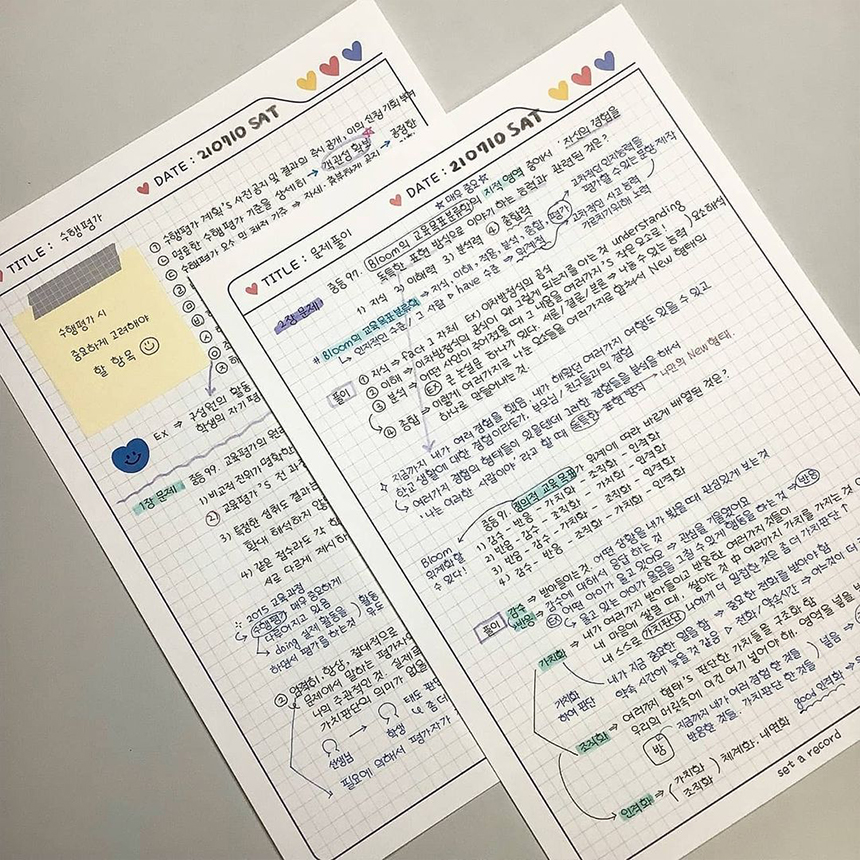 DATE : 210710 SAT
TITLE : 수행평가
① 수행평가 계획's 사전공지 및 결과의 즉시 공개, 이의 신청 기회 부여
명료한 수행평가 기준을 상세히 → 객관성 확보
수행평가 요소 및 채점 기준 ⇒ 자세
수행평가 시
중요하게 고려해야
할 항목
EX ⇒ 구성원의 활동
학생의 자기 평
1장 문제
중등 99. 교육평가의 원리
1) 비교적 전위가 명확한
② 교육평가's 전 과정
3) 특정한 성취도 결과는
확대 해석하지 않
4) 같은 점수라도 각
서로 다르게 제시하
2015 교육과정
수행평가 매우 중요하게
다루어지고 있음
doing 실제 활동을 ) 활동
하면서 평가를 하는것 유도
② 엄격히 항상, 절대적으로
문제에서 말하는 평가자의
나의 주관적인 것. 실제로
가치판단의 의미가 없을
선생님 → 학생
태도 판단
좀 더
필요에 의해서 평가자가
DATE : 210710 SAT
TITLE : 문제풀이
2장 문제
☆매우 중요☆
중등 97. Bloom의 교육목표분류학의 지적 영역 중에서 '자신의 경험을
독특한 표현 방식으로 이야기 하는 능력'과 관련된 것은?
1) 지식 2) 이해력 3) 분석력 ④ 종합력
고차적인 인지능력을
평가할 수 있는 문항 제작
고차적인 사고 능력
가르치기위해 노력
# Bloom의 교육목표분류학 ⇒ 지식, 이해, 적용, 분석, 종합, 평가
↳ 인지적인 수준 / 그 사람 ▷ have 수준 ⇒ 위계적
풀이
① 지식 ⇒ fact 그 자체 EX) 이차방정식의 공식
② 이해 ⇒ 이차방정식의 공식이 왜 그렇게 되는지를 아는 것 understanding
③ 분석 ⇒ 어떤 사안이 주어졌을 때 그 내용을 여러가지's 작용 요소로!
EX 준 논설문 한나가 있다. 서론/결론/본론 → 나눌 수 있는 능력 ) 요소해석
④ 종합 ⇒ 이렇게 여러가지로 나눈 요소들을 여러가지로 합쳐서 New 형태의
하나로 만들어내는 것.
지금까지 내가 여러 경험을 했음. 내가 해왔던 여러가지 여행도 있을 수 있고,
학교 생활에 대한 경험이라든가, 부모님/친구들과의 경험
↳ 여러가지 경험의 형태들이 있을텐데 그러한 경험들을 분석을 해서
'나는 이러한 사람이야' 라고 할 때 독특한 표현 방식 → 나만의 New 형태.
중등 9. 정의적 교육 목표가 위계에 따라 바르게 배열된 것은?
1) 감수 - 반응 - 가치화 - 조직화 - 인격화
2) 반응 - 감수 - 조직화 - 가치화 - 인격화
3) 반응 - 감수 - 가치화 - 조직화 - 인격화
4) 감수 - 반응 - 조직화 - 가치화 - 인격화
Bloom
위계화함
수 있다!
풀이
감수 ⇒ 받아들이는 것: 어떤 상황을 내가 봤을 때 관심있게 보는것
반응 ⇒ 감수에 대해서, 응답 하는 것
EX 어떤 아이가 울고 있어요 ⇒ 관심을 기울였어요
↳ 울고 있는 아이가 울음을 그칠 수 있게 행동을 하는 것 ⇒ 반응
가치화 ⇒ 내가 여러가지 받아들이고 반응한 여러가지 것들이
내 마음에 쌓일 때, 쌓이는 것 中 여러가지 가치를 가지는 것
내 스스로 가치판단 나에게 더 밀접한 것은 좀 더 가치판단 ↑
가치화
하여 판단
내가 지금 중요한 일을 함 → 중요한 전화를 받아야 함
약속 시간에 늦을 것 같음 ▷ 전화/약속시간 ⇒ 어느것이 더
조직화 ⇒ 여러가지 형태's 판단한 가치들을 구조화 함
우리의 머릿속에 이건 여기 넣어야 해. 영역을 넣을
방
지금까지 내가 여러 경험 한 것들
반응한 것들. 가치판단 한 것들 ) 넣음 ⇒
good 인격화
인격화 ⇒ ( 가치화 조직화 ) 체계화. 내면화
set a record